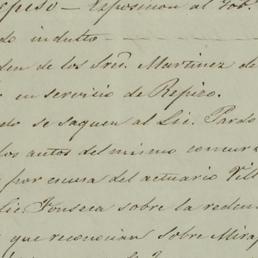 speso — Esposicion al Gob.
do indulto —
den de los Sres. Martinez de
en servicio de Repiso.
do se saquen al Lic. Pardo
los autos del mismo concur
por encura del actuario Vill
Lic Fonseca sobre la reden
que reconocian sobre Miraf